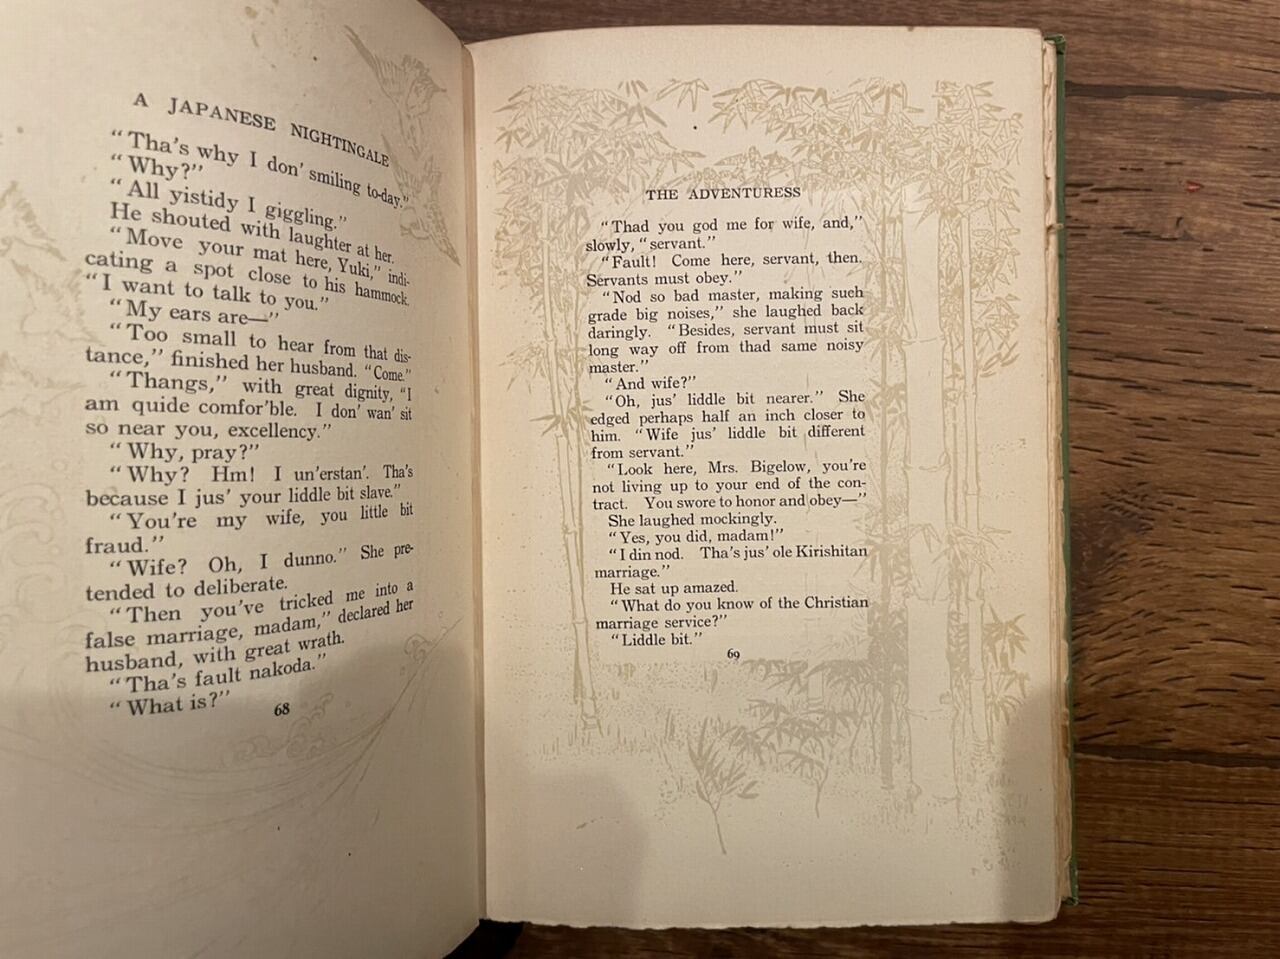 A JAPANESE NIGHTINGALE
"Tha's why I don' smiling to-day."
"Why?"
"All yistidy I giggling."
He shouted with laughter at her.
"Move your mat here, Yuki," indi-
cating a spot close to his hammock.
"I want to talk to you."
"My ears are—"
"Too small to hear from that dis-
tance," finished her husband. "Come."
"Thangs," with great dignity, "I
am quide comfor'ble. I don' wan' sit
so near you, excellency."
"Why, pray?"
"Why? Hm! I un'erstan'. Tha's
because I jus' your liddle bit slave."
"You're my wife, you little bit
fraud."
"Wife? Oh, I dunno." She pre-
tended to deliberate.
"Then you've tricked me into a
false marriage, madam," declared her
husband, with great wrath.
"Tha's fault nakoda."
"What is?"
68
THE ADVENTURESS
"Thad you god me for wife, and,"
slowly, "servant."
"Fault! Come here, servant, then.
Servants must obey."
"Nod so bad master, making such
grade big noises," she laughed back
daringly. "Besides, servant must sit
long way off from thad same noisy
master."
"And wife?"
"Oh, jus' liddle bit nearer." She
edged perhaps half an inch closer to
him. "Wife jus' liddle bit different
from servant."
"Look here, Mrs. Bigelow, you're
not living up to your end of the con-
tract. You swore to honor and obey—"
She laughed mockingly.
"Yes, you did, madam!"
"I din nod. Tha's jus' ole Kirishitan
marriage."
He sat up amazed.
"What do you know of the Christian
marriage service?"
"Liddle bit."
69